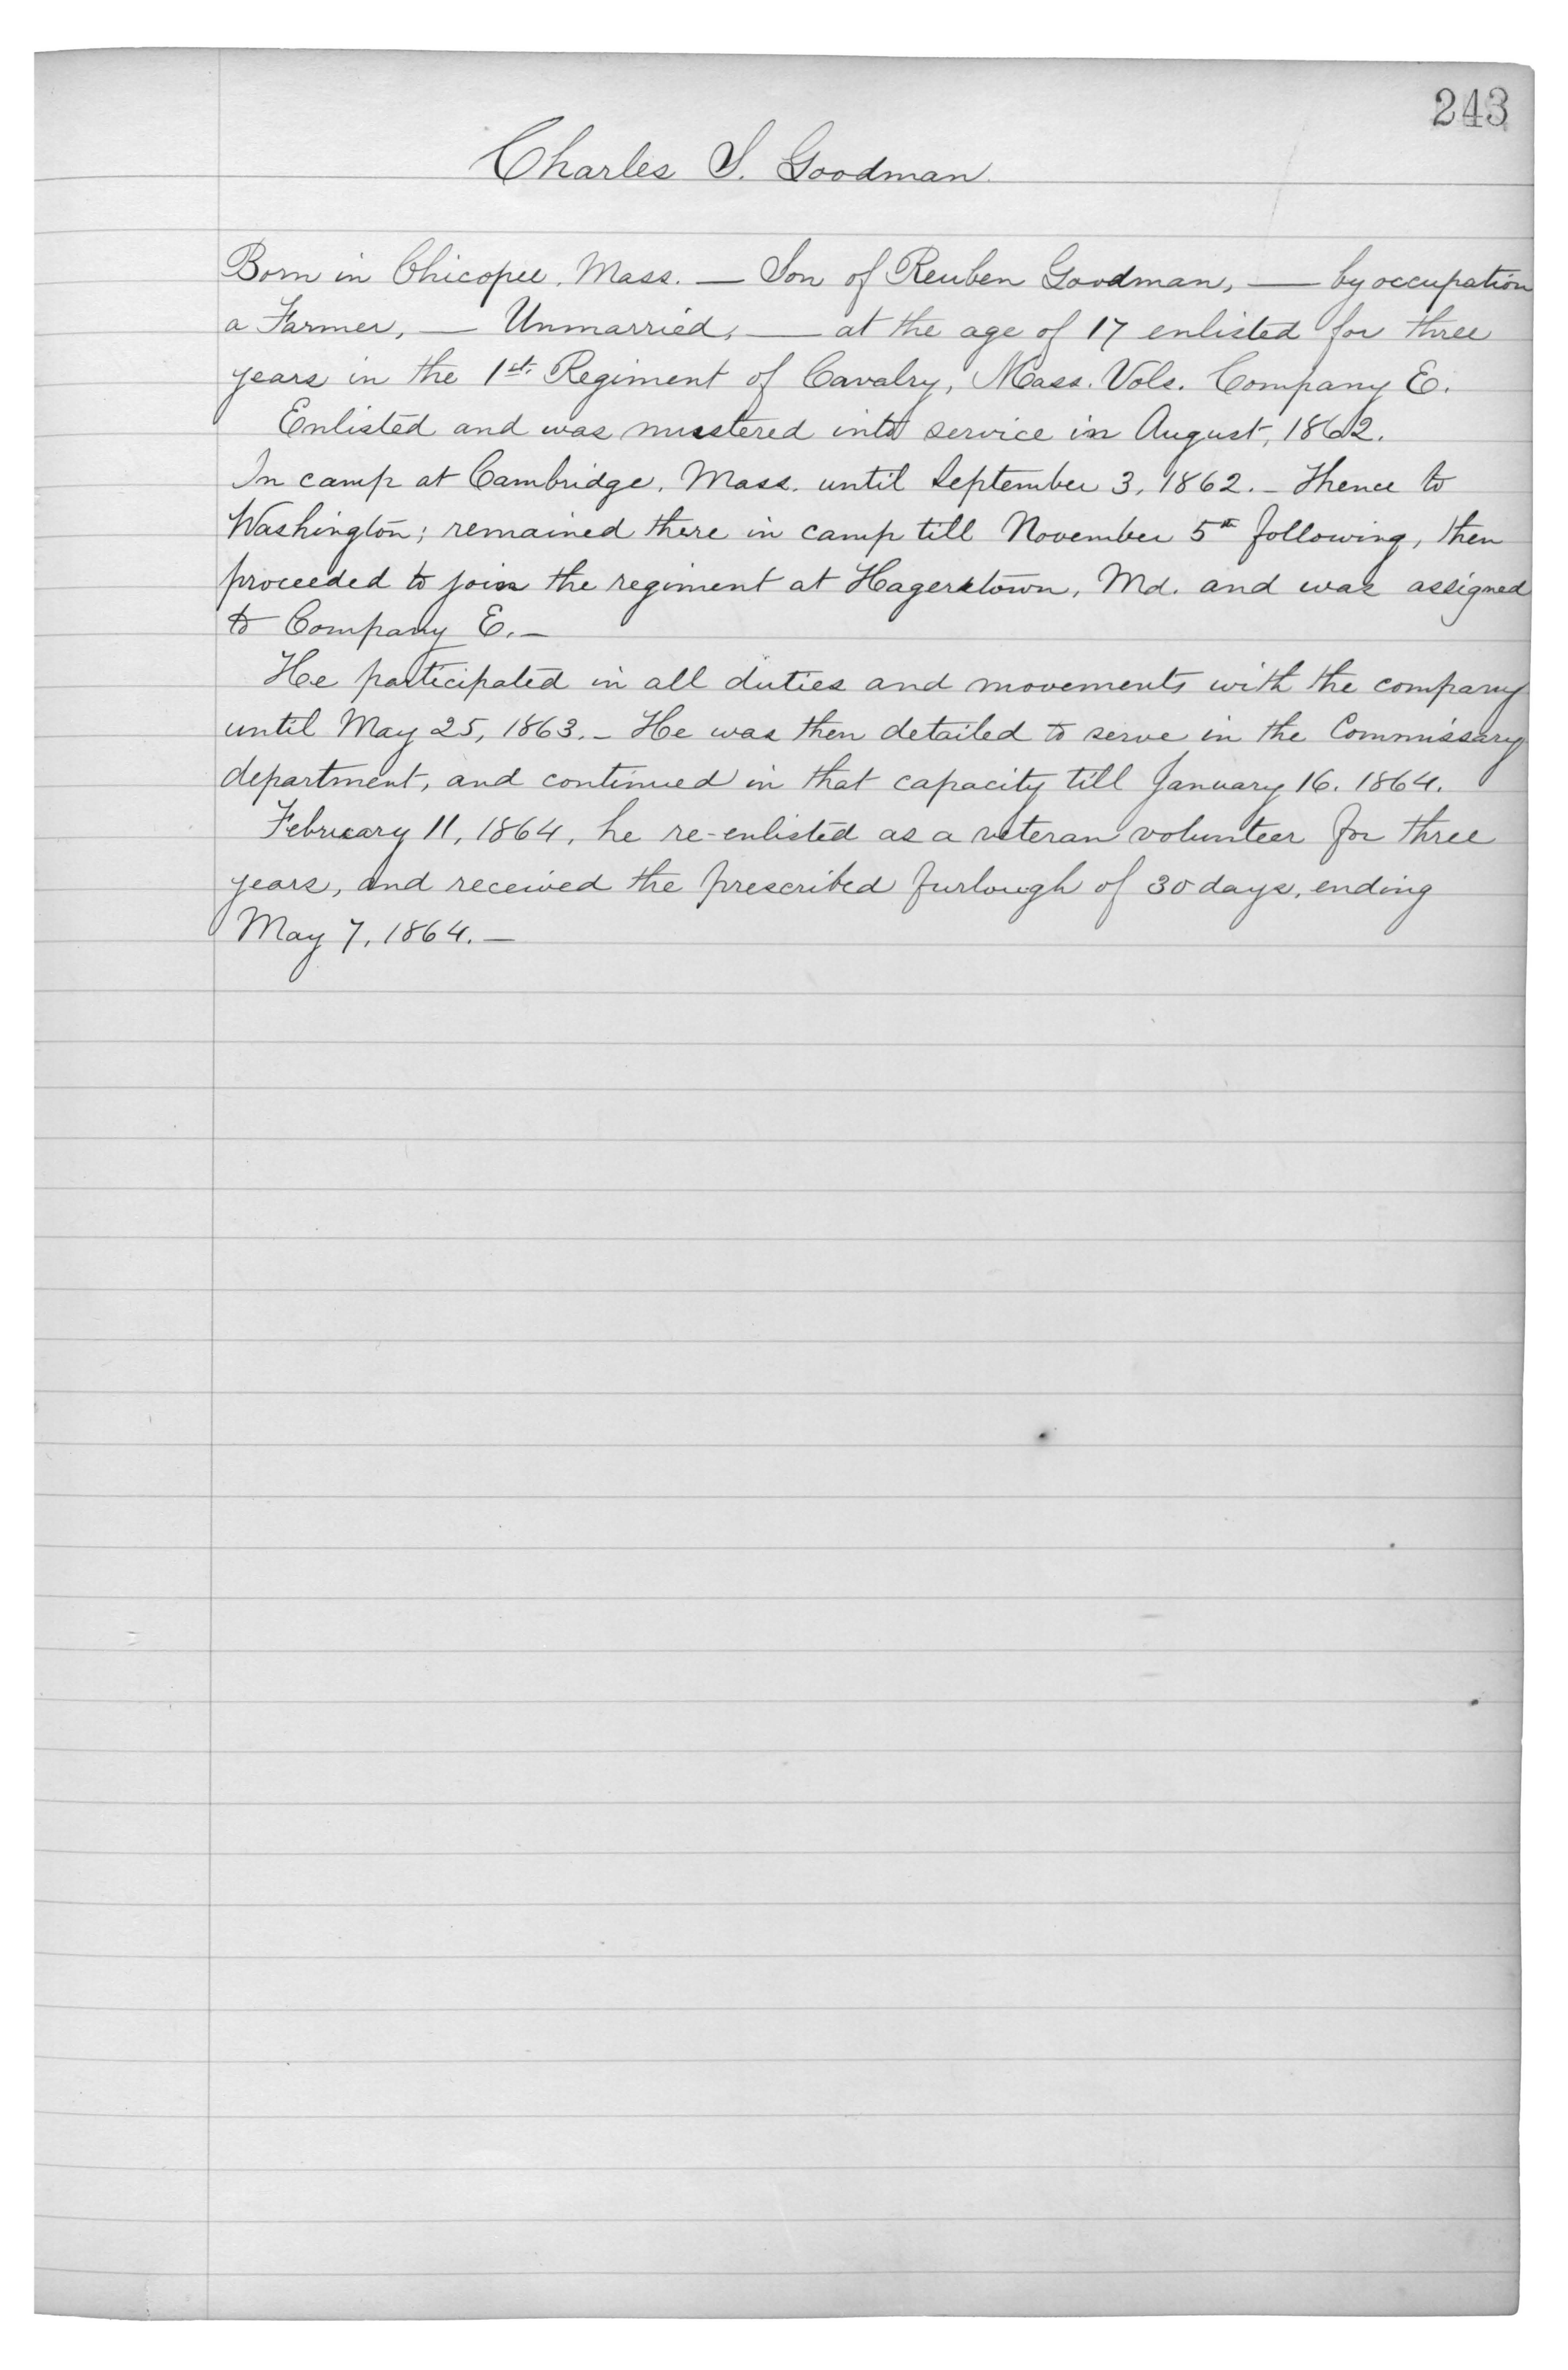 243
Charles S. Goodman.
Born in Chicopee, Mass. — Son of Reuben Goodman, — by occupation
a Farmer, — Unmarried, — at the age of 17 enlisted for three
years in the 1st. Regiment of Cavalry, Mass. Vols. Company E.
Enlisted and was mustered into service in August, 1862.
In camp at Cambridge, Mass. until September 3, 1862. — Thence to
Washington; remained there in camp till November 5th following, then
proceeded to join the regiment at Hagerstown, Md. and was assigned
to Company E. —
He participated in all duties and movements with the company
until May 25, 1863. — He was then detailed to serve in the Commissary
department, and continued in that capacity till January 16. 1864.
February 11, 1864, he re-enlisted as a veteran volunteer for three
years, and received the prescribed furlough of 30 days, ending
May 7, 1864. —